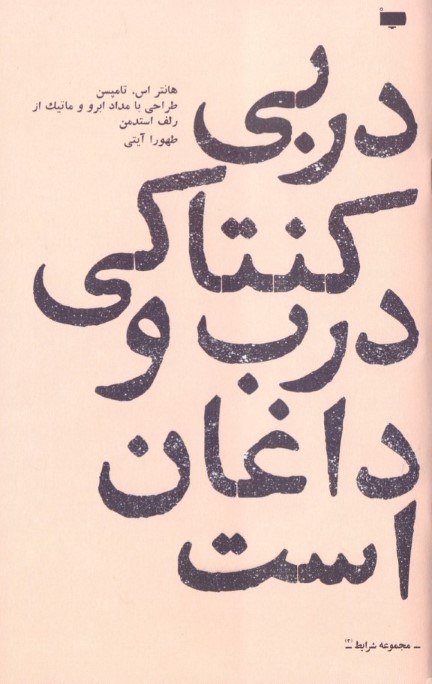 دربی
کنتاکی
درب و
داغان
است
هانتر اس. تامپسن
طراحی با مداد ابرو و ماتیک از
رلف استدمن
طهورا آیتی
ـ مجموعه شرایط (۲) ـ